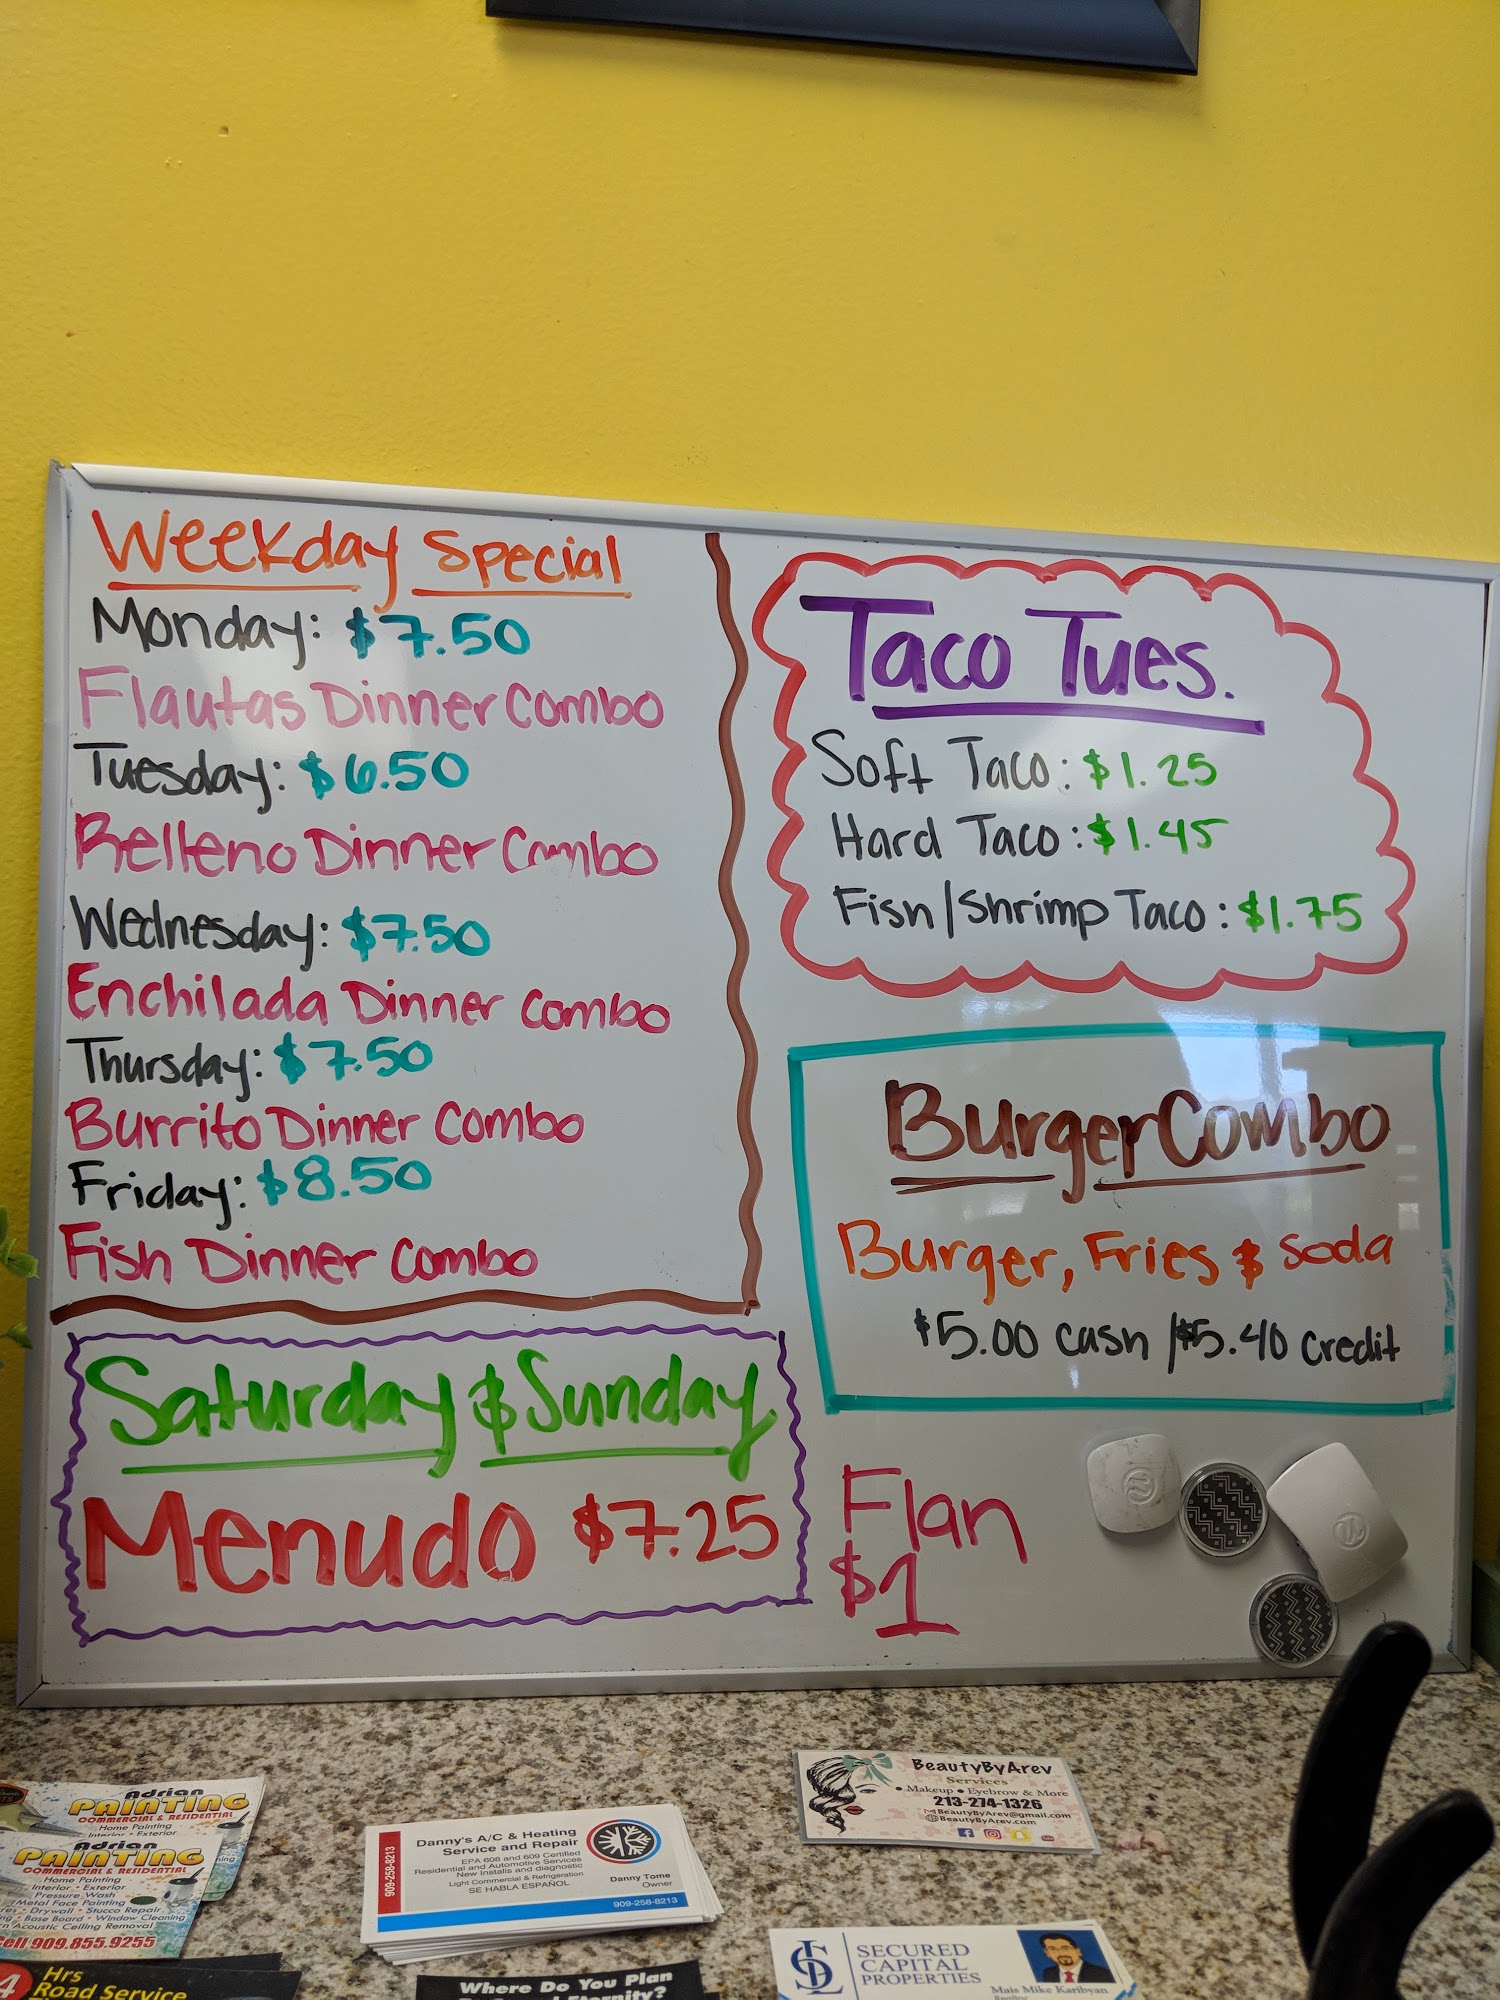 Weekday Special
Monday: $7.50
Flautas Dinner Combo
Tuesday: $6.50
Relleno Dinner Combo
Wednesday: $7.50
Enchilada Dinner Combo
Thursday: $7.50
Burrito Dinner Combo
Friday: $8.50
Fish Dinner Combo
Saturday & Sunday
Menudo $7.25
Taco Tues.
Soft Taco: $1.25
Hard Taco: $1.45
Fish/Shrimp Taco: $1.75
Burger Combo
Burger, Fries & Soda
$5.00 cash / $5.40 credit
Flan
$1
Adrian
PAINTING
COMMERCIAL & RESIDENTIAL
Home Painting
Interior • Exterior
Adrian
PAINTING
COMMERCIAL & RESIDENTIAL
Home Painting
Interior • Exterior
Pressure Wash
Metal Face Painting
Drywall • Stucco Repair
Base Board • Window Cleaning
Acoustic Ceiling Removal
Cell 909.855.9255
4 Hrs
Road Service
909-258-8213
Danny's A/C & Heating
Service and Repair
EPA 608 and 609 Certified
Residential and Automotive Services
New Installs and diagnostic
Light Commercial & Refrigeration
SE HABLA ESPAÑOL
Danny Tome
Owner
909-258-8213
Where Do You Plan
BeautyByArev
Services
• Makeup • Eyebrow & More
213-274-1326
BeautyByArev@gmail.com
BeautyByArev.com
SECURED
CAPITAL
PROPERTIES
Mais Mike Karibyan